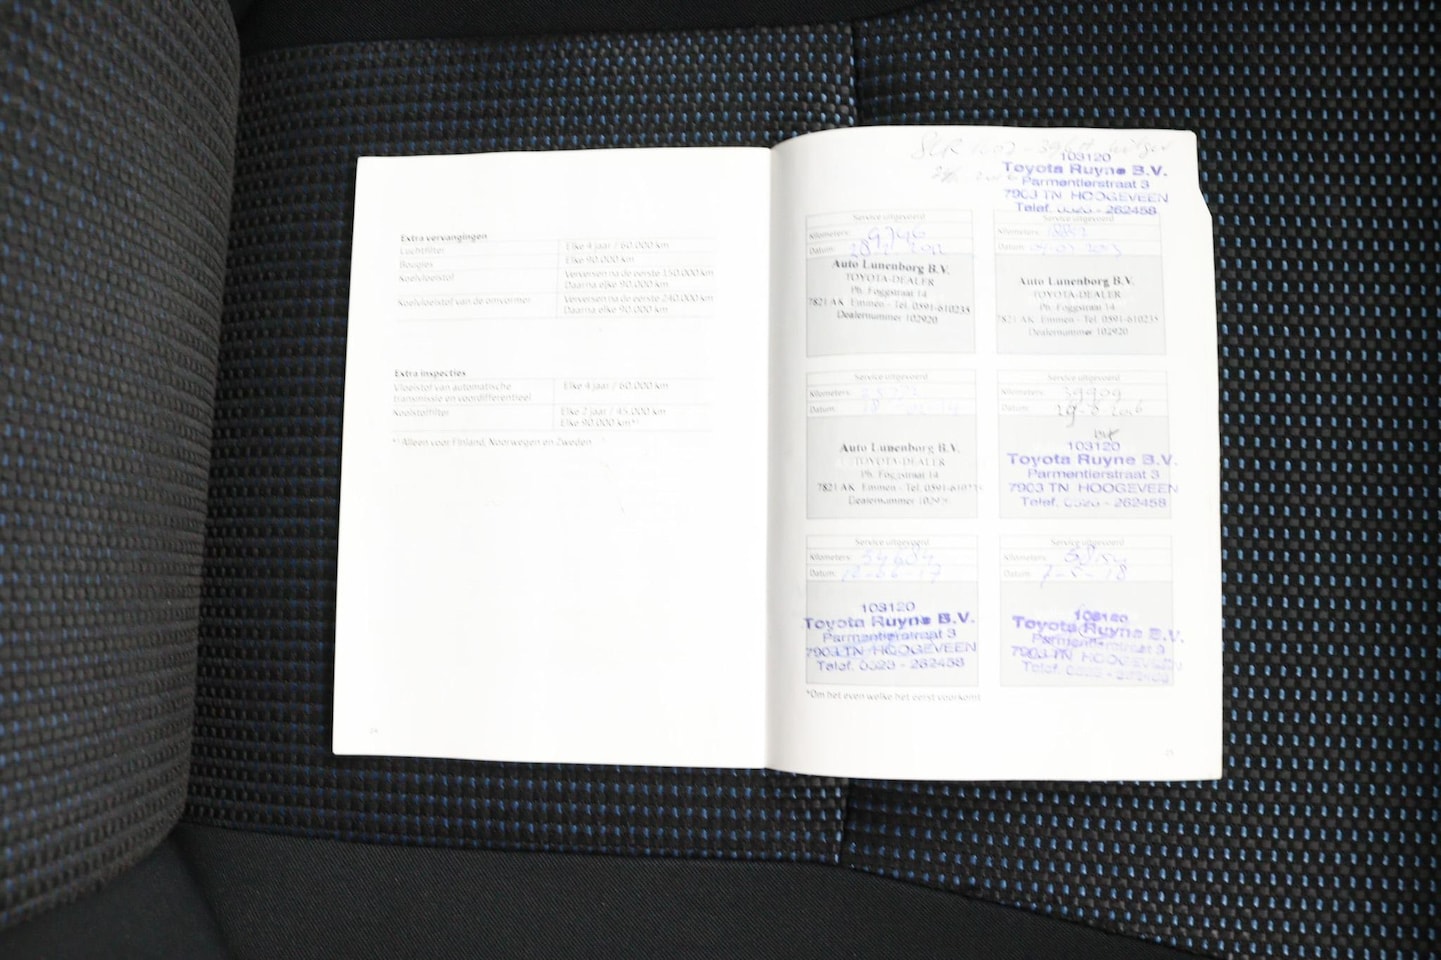 Extra vervangingen
Luchtfilter Elke 4 jaar / 60.000 km
Bougies Elke 90.000 km
Koelvloeistof Verversen na de eerste 150.000 km
Daarna elke 90.000 km
Koelvloeistof van de omvormer Verversen na de eerste 240.000 km
Daarna elke 90.000 km
Extra inspecties
Vloeistof van automatische transmissie en voordifferentieel Elke 4 jaar / 60.000 km
Koolstoffilter Elke 2 jaar / 45.000 km
Elke 90.000 km*¹
*¹ Alleen voor Finland, Noorwegen en Zweden
24
103120
Toyota Ruyne B.V.
Parmentierstraat 3
7903 TN HOOGEVEEN
Telef. 0528 - 262458
Service uitgevoerd
Kilometers: 9746
Datum:
Auto Lunenborg B.V.
TOYOTA-DEALER
Ph. Foggstraat 14
7821 AK Emmen - Tel. 0591-610235
Dealernummer 102920
Service uitgevoerd
Kilometers:
Datum: 2013
Auto Lunenborg B.V.
TOYOTA-DEALER
Ph. Foggstraat 14
7821 AK Emmen - Tel. 0591-610235
Dealernummer 102920
Service uitgevoerd
Kilometers:
Datum:
Auto Lunenborg B.V.
TOYOTA-DEALER
Ph. Foggstraat 14
7821 AK Emmen - Tel.
Dealernummer
Service uitgevoerd
Kilometers: 39909
Datum: 2016
103120
Toyota Ruyne B.V.
Parmentierstraat 3
7903 TN HOOGEVEEN
Telef. 0528 - 262458
Service uitgevoerd
Kilometers:
Datum:
103120
Toyota Ruyne B.V.
Parmentierstraat 3
7903 TN HOOGEVEEN
Telef. 0528 - 262458
Service uitgevoerd
Kilometers:
Datum:
103120
Toyota Ruyne B.V.
Parmentierstraat 3
7903 TN HOOGEVEEN
Telef.
*Om het even welke het eerst voorkomt
25